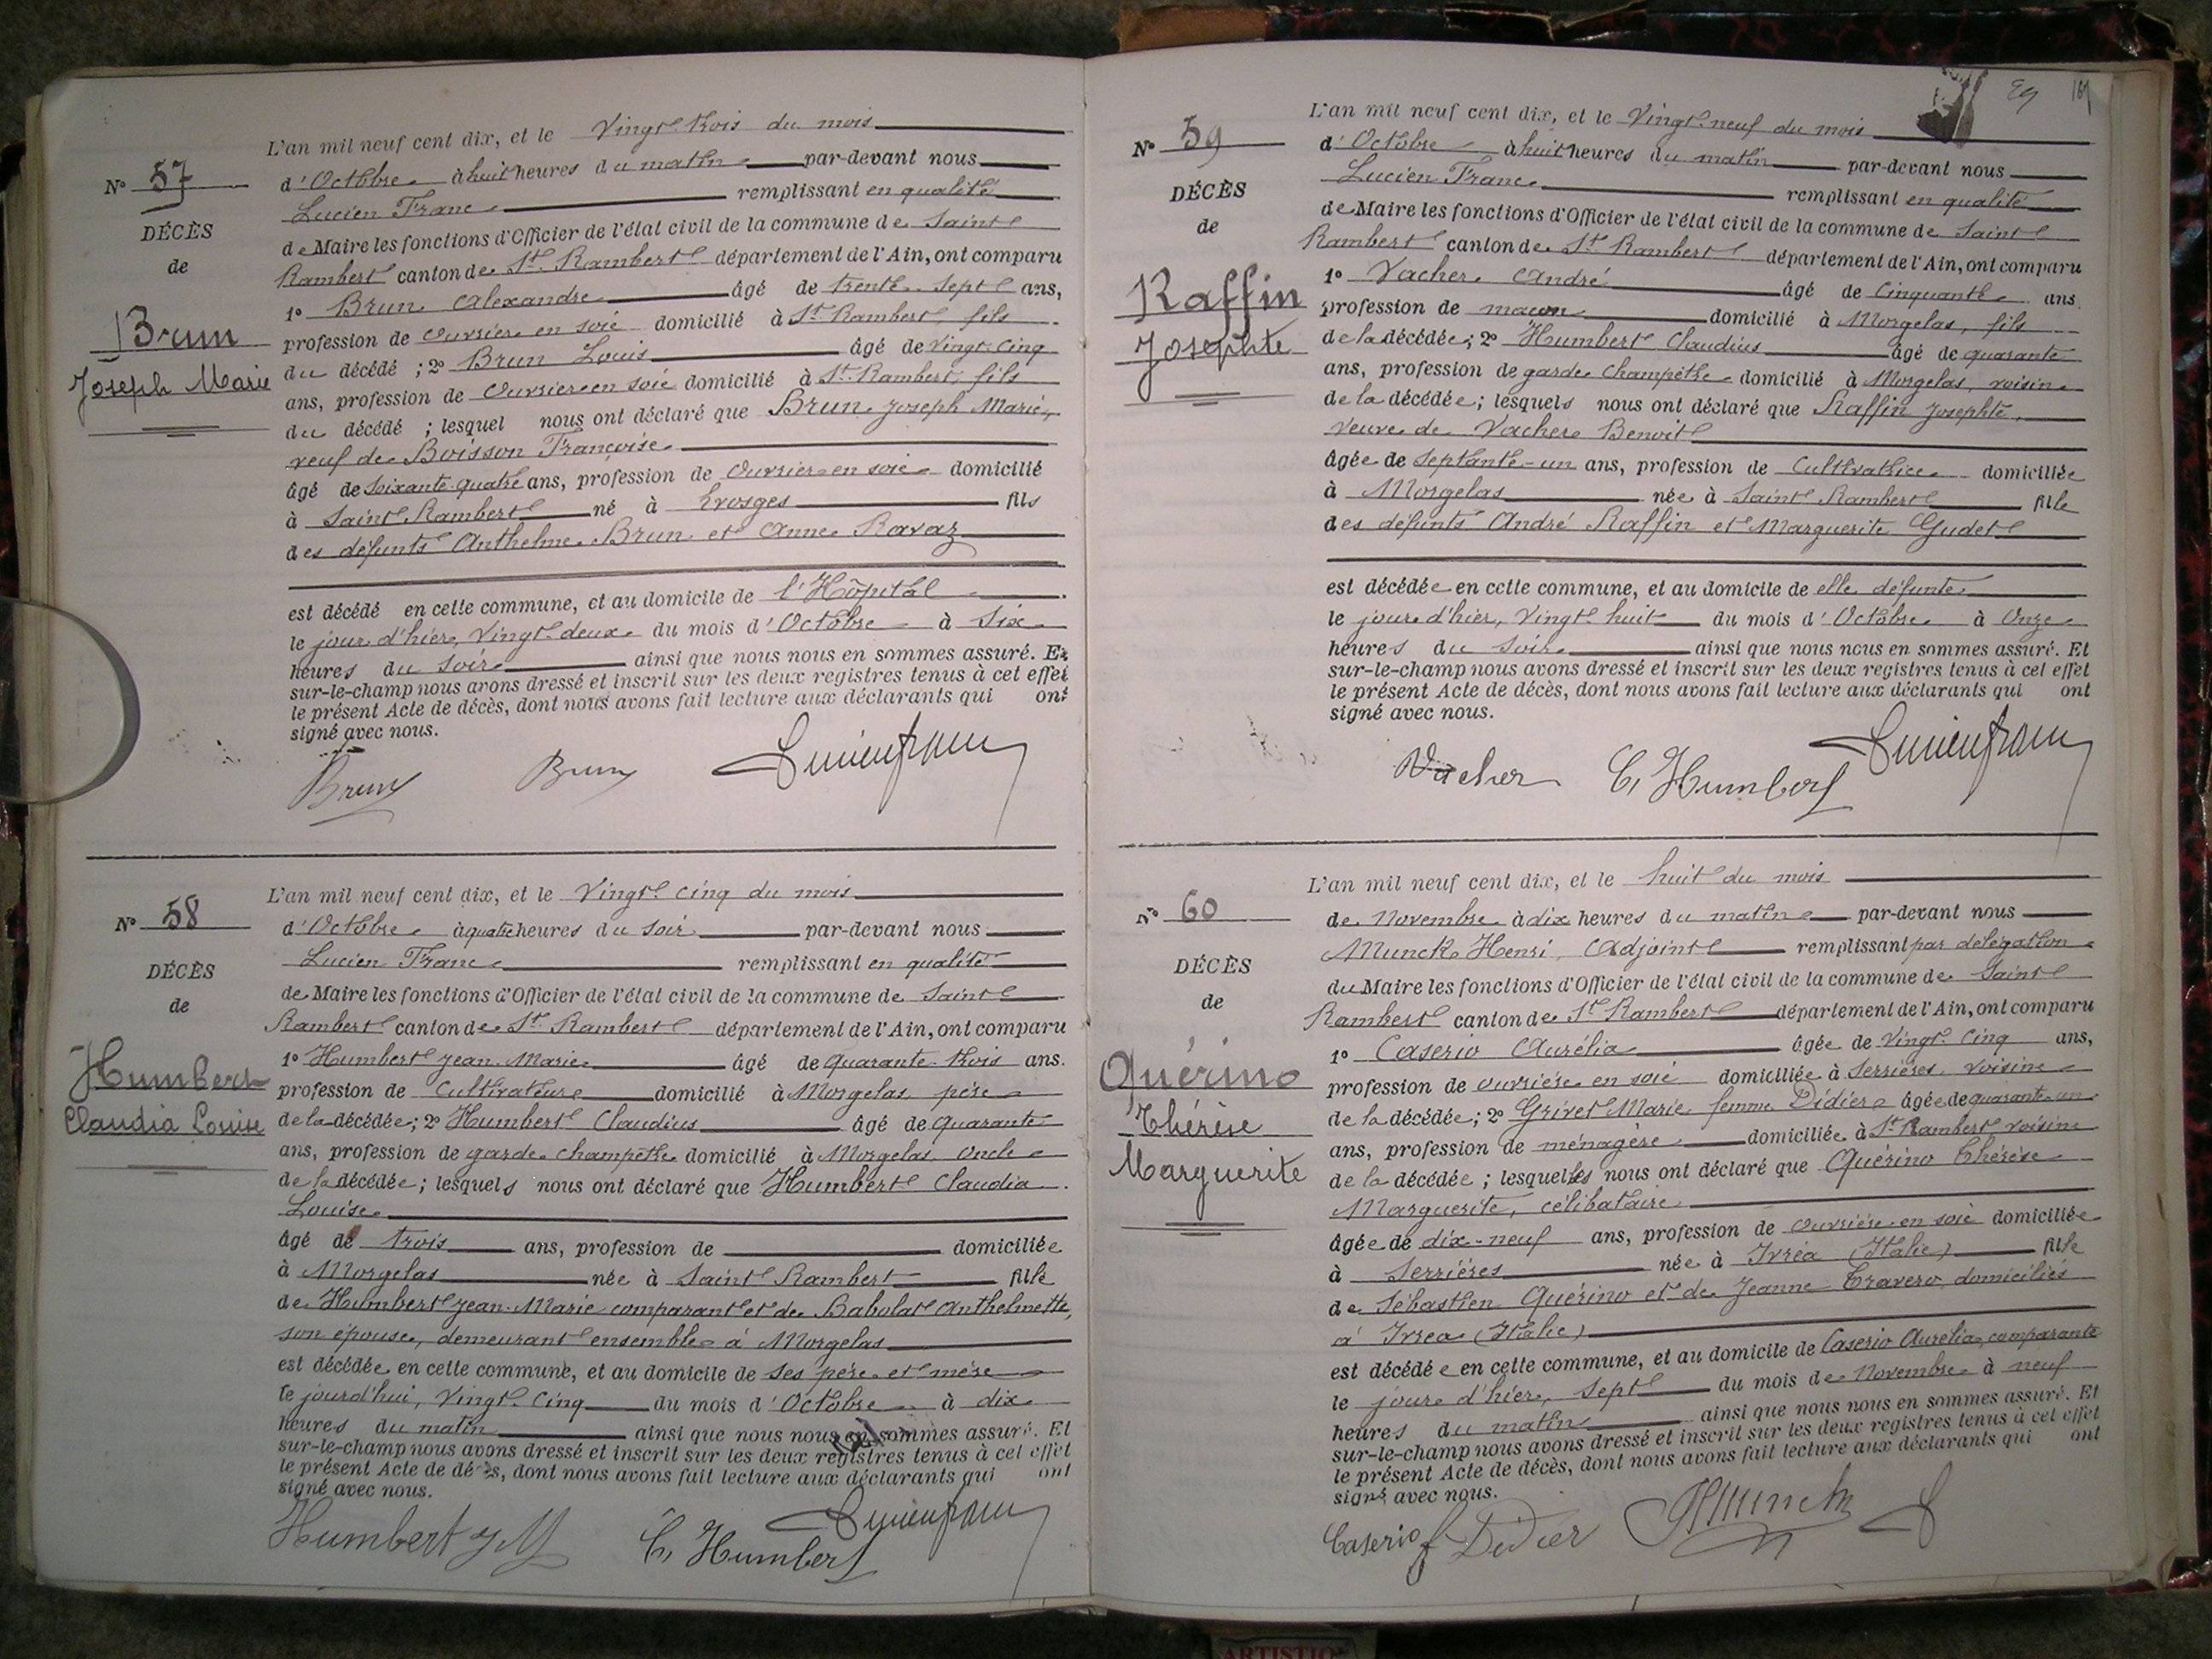 L'an mil neuf cent dix, et le Vingt-trois du mois
N° 57
d'Octobre à huit heures du matin par-devant nous
Lucien Franc remplissant en qualité
DÉCÈS
de Maire les fonctions d'Officier de l'état civil de la commune de Saint
de
Rambert canton de St Rambert département de l'Ain, ont comparu
1° Brun Alexandre âgé de trente-sept ans,
Brun
profession de ouvrier en soie domicilié à St Rambert, fils
du décédé ; 2° Brun Louis âgé de vingt-cinq
Joseph Marie
ans, profession de ouvrier en soie domicilié à St Rambert, fils
du décédé ; lesquel nous ont déclaré que Brun Joseph Marie,
veuf de Boisson Françoise
âgé de soixante-quatre ans, profession de ouvrier en soie domicilié
à Saint Rambert né à fils
des défunts Anthelme Brun et Anne Ravaz
est décédé en cette commune, et au domicile de l'Hôpital
le jour d'hier, vingt-deux du mois d'Octobre à six
heures du soir ainsi que nous nous en sommes assuré. Et
sur-le-champ nous avons dressé et inscrit sur les deux registres tenus à cet effet
le présent Acte de décès, dont nous avons fait lecture aux déclarants qui ont
signé avec nous.
Brun Brun Lucien Franc
L'an mil neuf cent dix, et le Vingt-cinq du mois
N° 58
d'Octobre à quatre heures du soir par-devant nous
Lucien Franc remplissant en qualité
DÉCÈS
de Maire les fonctions d'Officier de l'état civil de la commune de Saint
de
Rambert canton de St Rambert département de l'Ain, ont comparu
1° Humbert Jean-Marie âgé de quarante-trois ans.
Humbert
profession de cultivateur domicilié à Morgelas, père
Claudia Louise
de la décédée ; 2° Humbert Claudius âgé de quarante
ans, profession de garde champêtre domicilié à Morgelas, oncle
de la décédée ; lesquels nous ont déclaré que Humbert Claudia
Louise
âgé de trois ans, profession de domiciliée
à Morgelas née à Saint Rambert fille
de Humbert Jean-Marie comparant et de Babolat Anthelmette,
son épouse, demeurant ensemble à Morgelas
est décédée en cette commune, et au domicile de ses père et mère
le jourd'hui, vingt-cinq du mois d'Octobre à dix
heures du matin ainsi que nous nous en sommes assuré. Et
sur-le-champ nous avons dressé et inscrit sur les deux registres tenus à cet effet
le présent Acte de décès, dont nous avons fait lecture aux déclarants qui ont
signé avec nous.
Humbert J M C. Humbert Lucien Franc
L'an mil neuf cent dix, et le Vingt-neuf du mois
N° 59
d'Octobre à huit heures du matin par-devant nous
Lucien Franc remplissant en qualité
DÉCÈS
de Maire les fonctions d'Officier de l'état civil de la commune de Saint
de
Rambert canton de St Rambert département de l'Ain, ont comparu
1° Vacher André âgé de cinquante ans
Raffin
profession de maçon domicilié à Morgelas, fils
Josephte
de la décédée ; 2° Humbert Claudius âgé de quarante
ans, profession de garde champêtre domicilié à Morgelas, voisin
de la décédée ; lesquels nous ont déclaré que Raffin Josephte,
veuve de Vacher Benoit
âgée de septante-un ans, profession de cultivatrice domiciliée
à Morgelas née à Saint Rambert fille
des défunts André Raffin et Marguerite Gudet
est décédée en cette commune, et au domicile de elle défunte
le jour d'hier, vingt-huit du mois d'Octobre à onze
heures du soir ainsi que nous nous en sommes assuré. Et
sur-le-champ nous avons dressé et inscrit sur les deux registres tenus à cet effet
le présent Acte de décès, dont nous avons fait lecture aux déclarants qui ont
signé avec nous.
Vacher C. Humbert Lucien Franc
L'an mil neuf cent dix, et le huit du mois
N° 60
de Novembre à dix heures du matin par-devant nous
Munck Henri, Adjoint remplissant par délégation
DÉCÈS
du Maire les fonctions d'Officier de l'état civil de la commune de Saint
de
Rambert canton de St Rambert département de l'Ain, ont comparu
1° Caserio Aurélia âgée de vingt-cinq ans,
Quérino
profession de ouvrière en soie domiciliée à Serrières, voisine
Thérèse
de la décédée ; 2° Grivet Marie femme Didier âgée de quarante-un
ans, profession de ménagère domiciliée à St Rambert voisine
Marguerite
de la décédée ; lesquelles nous ont déclaré que Quérino Thérèse
Marguerite, célibataire
âgée de dix-neuf ans, profession de ouvrière en soie domiciliée
à Serrières née à Ivréa (Italie) fille
de Sébastien Quérino et de Jeanne Travero, domiciliés
à Ivrea (Italie)
est décédée en cette commune, et au domicile de Caserio Aurélia, comparante
le jour d'hier, sept du mois de Novembre à neuf
heures du matin ainsi que nous nous en sommes assuré. Et
sur-le-champ nous avons dressé et inscrit sur les deux registres tenus à cet effet
le présent Acte de décès, dont nous avons fait lecture aux déclarants qui ont
signé avec nous.
Caserio f Didier HMunck